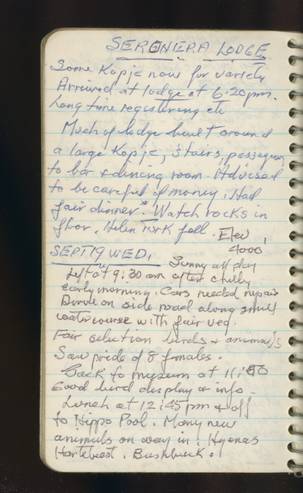 SERONERA LODGE
Some Kopje now for variety
Arrived at lodge at 6:20pm.
Long time registering etc
Much of lodge built around
a large Kopje, stairs, passageway
to bar & dining room. Advised
to be careful of money. Had
fair dinner. Watch rocks in
floor. Helen Kirk fell. Elev
4000'
SEPT 19 WED. Sunny all day
Left at 9:30 am after chilly
early morning. Cars needed repairs
Drove on side road along small
watercourse with fair veg.
Fair selection birds & animals
Saw pride of 8 females.
Back to museum at 11:
Good bird display & info.
Lunch at 12:45 pm & off
to Hippo Pool. Many new
animals on way in. Hyenas
Hartebeest. Bushbuck.